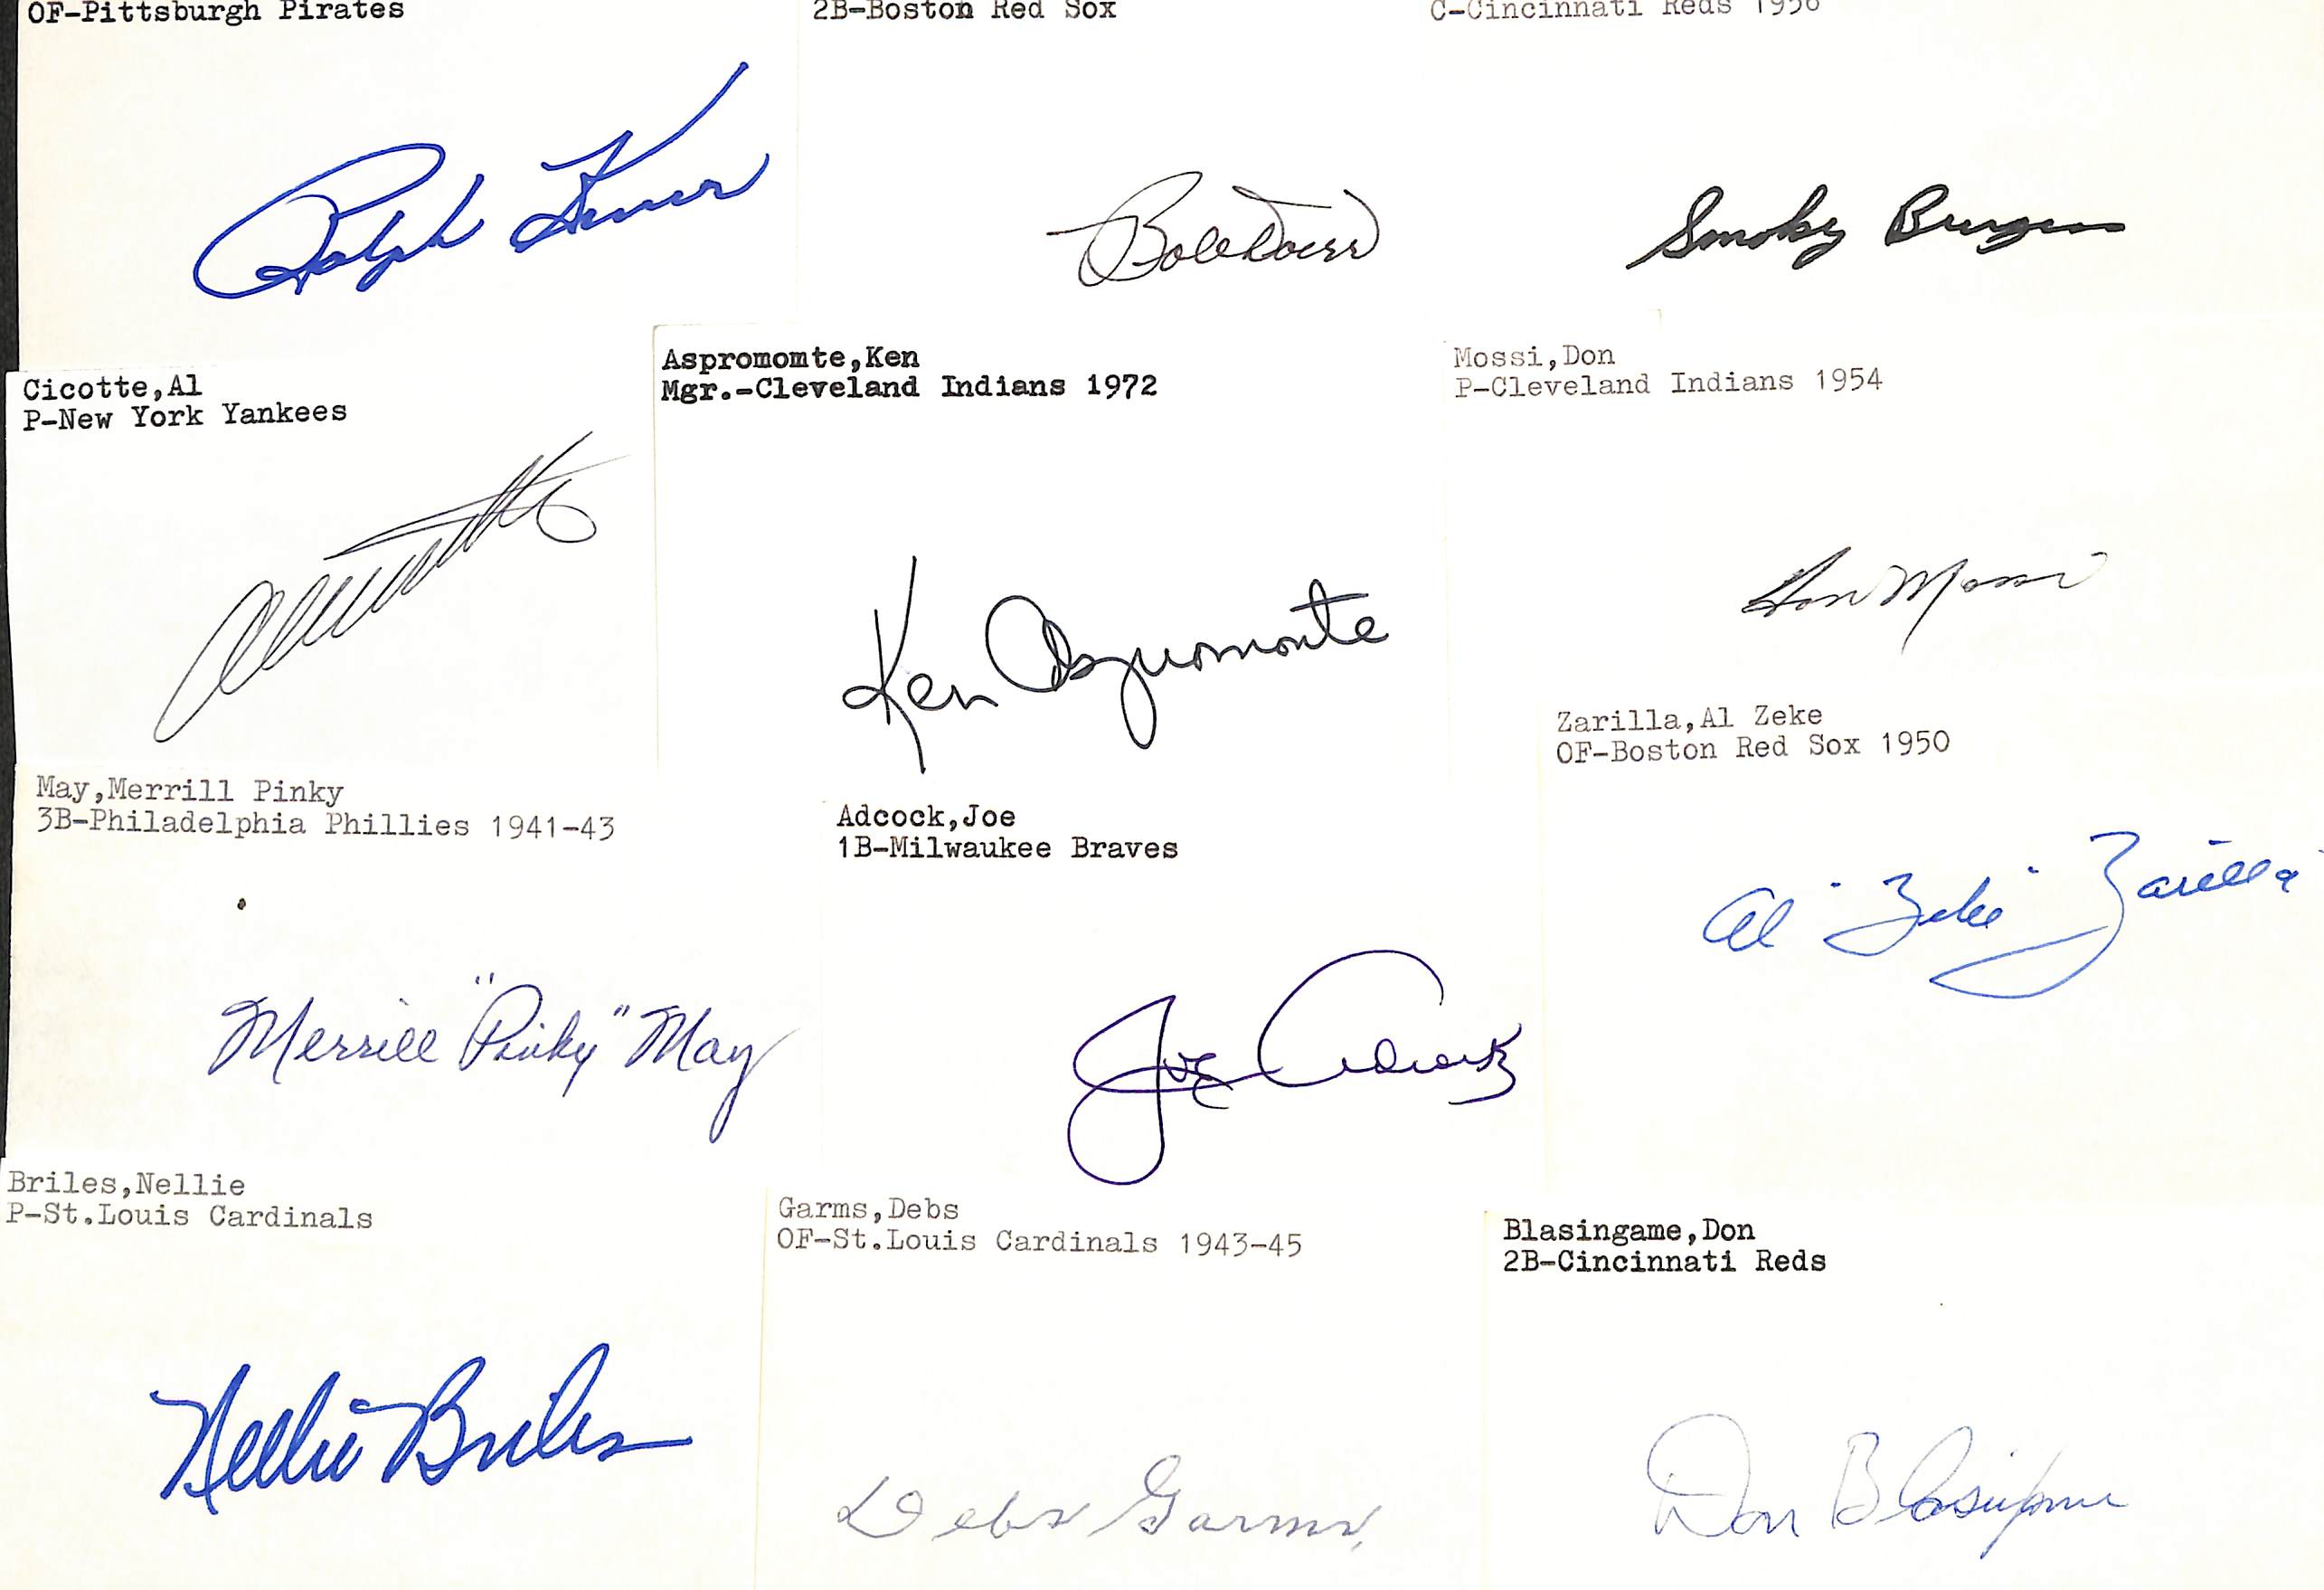 OF-Pittsburgh Pirates
Ralph Kiner
2B-Boston Red Sox
Bob Doerr
C-Cincinnati Reds 1956
Smoky Burgess
Cicotte,Al
P-New York Yankees
Al Cicotte
Aspromomte,Ken
Mgr.-Cleveland Indians 1972
Ken Aspromonte
Mossi,Don
P-Cleveland Indians 1954
Don Mossi
May,Merrill Pinky
3B-Philadelphia Phillies 1941-43
Merrill "Pinky" May
Adcock,Joe
1B-Milwaukee Braves
Joe Adcock
Zarilla,Al Zeke
OF-Boston Red Sox 1950
Al "Zeke" Zarilla
Briles,Nellie
P-St.Louis Cardinals
Nellie Briles
Garms,Debs
OF-St.Louis Cardinals 1943-45
Debs Garms
Blasingame,Don
2B-Cincinnati Reds
Don Blasingame